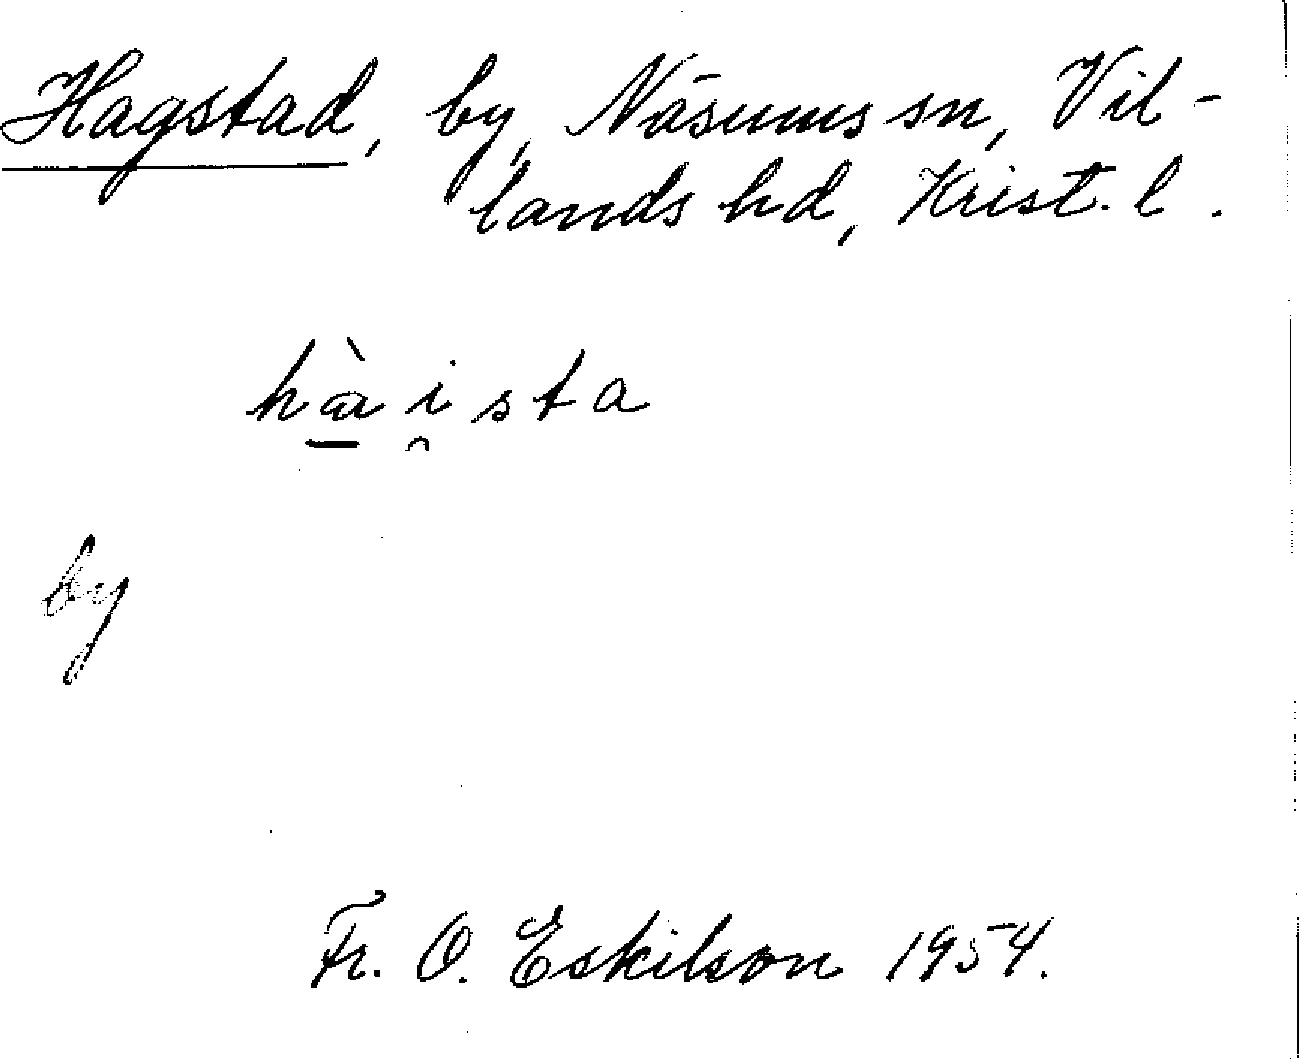 Hagstad, by, Näsums sn, Vil-
lands hd, Krist. l.
hæ̱̀i̯sta
by
Fr. O. Eskilson 1954.